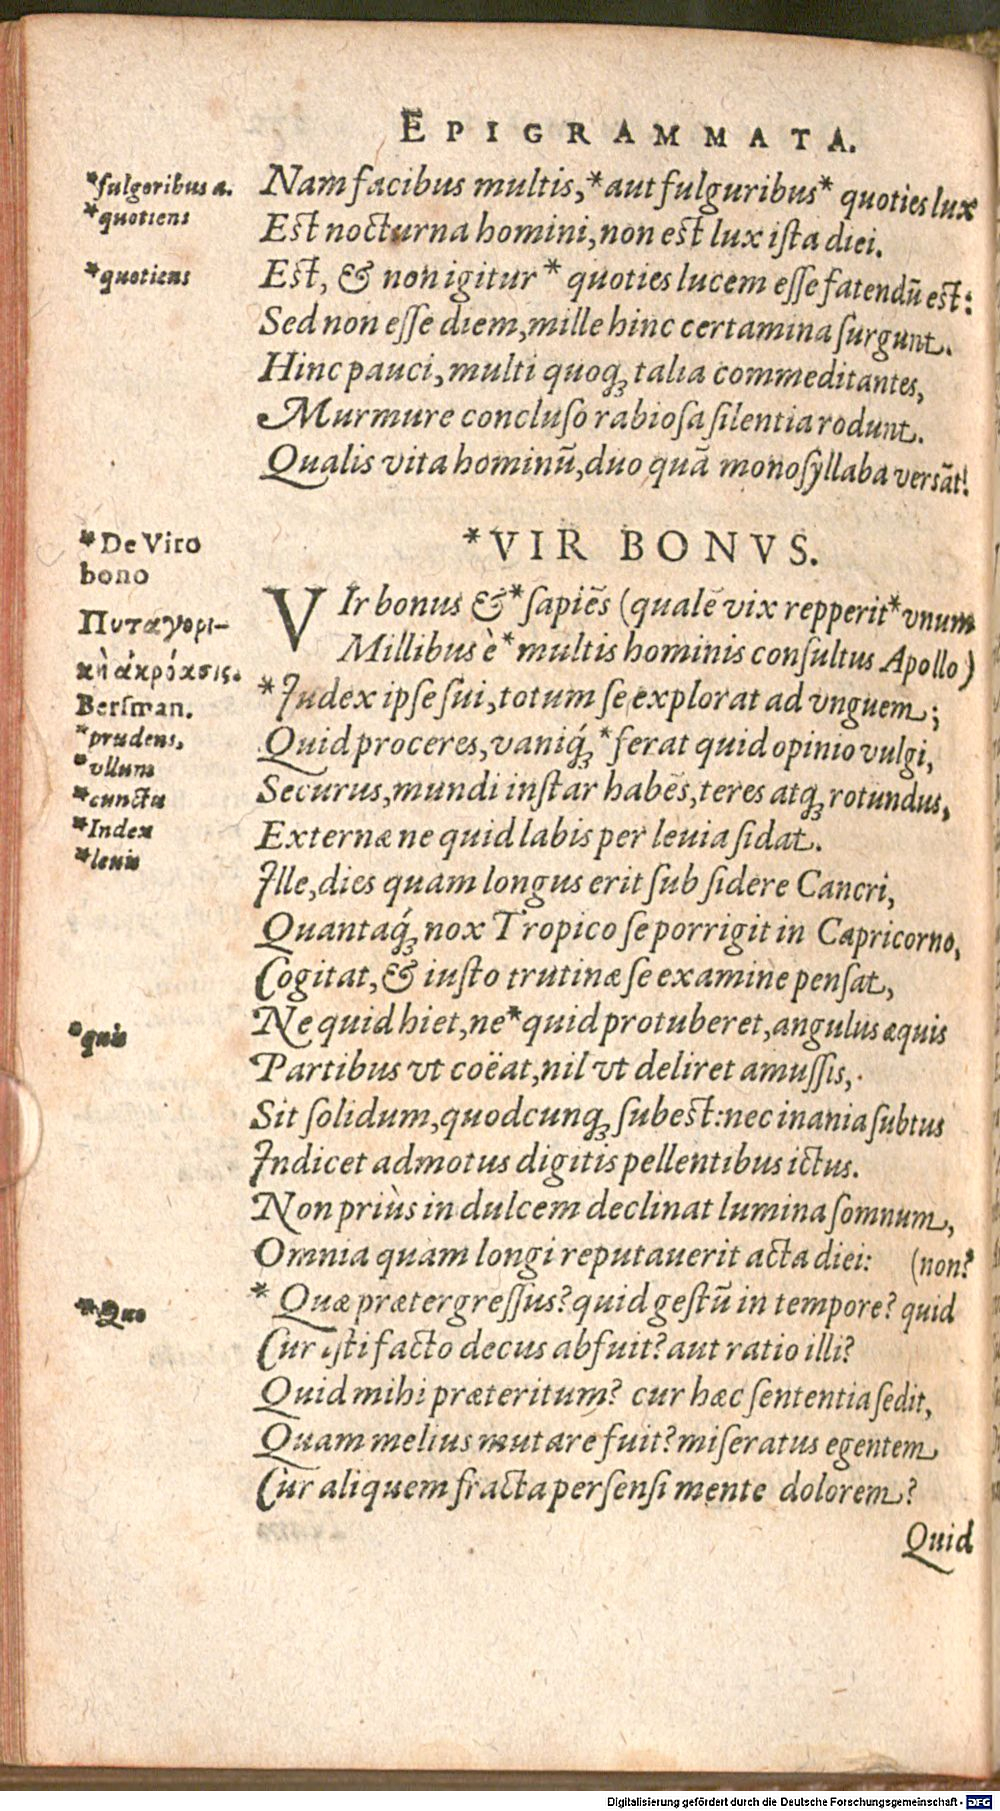 EPIGRAMMATA.
*fulgoribus a.
*quotiens
*quotiens
Nam facibus multis,*aut fulguribus* quoties lux
Est nocturna homini, non est lux ista diei.
Est, & non igitur * quoties lucem esse fatendū est:
Sed non esse diem, mille hinc certamina surgunt.
Hinc pauci, multi quoq; talia commeditantes,
Murmure concluso rabiosa silentia rodunt.
Qualis vita hominū, duo quā monosyllaba versāt!
*VIR BONVS.
*De Viro
bono
Πυταγορι-
κὴ ἀκρόασις.
Bersman.
*prudens.
*vllum
*cuncta
*Index
*leuis
VIr bonus & *sapiēs (qualē vix repperit *vnum
Millibus è *multis hominis consultus Apollo)
*Iudex ipse sui, totum se explorat ad vnguem;
Quid proceres, vaniq́; *ferat quid opinio vulgi,
Securus, mundi instar habēs, teres atq; rotundus,
Externæ ne quid labis per leuia sidat.
Ille, dies quam longus erit sub sidere Cancri,
Quantaq́; nox Tropico se porrigit in Capricorno,
Cogitat, & iusto trutinæ se examine pensat,
*quis
Ne quid hiet, ne *quid protuberet, angulus æquis
Partibus vt coëat, nil vt deliret amussis,
Sit solidum, quodcunq; subest: nec inania subtus
Indicet admotus digitis pellentibus ictus.
Non priùs in dulcem declinat lumina somnum,
Omnia quàm longi reputauerit acta diei: (non?
*Quo
* Quæ prætergressus? quid gestū in tempore? quid
Cur isti facto decus abfuit? aut ratio illi?
Quid mihi præteritum? cur hæc sententia sedit,
Quam melius mutare fuit? miseratus egentem
Cur aliquem fracta persensi mente dolorem?
Quid
Digitalisierung gefördert durch die Deutsche Forschungsgemeinschaft - DFG